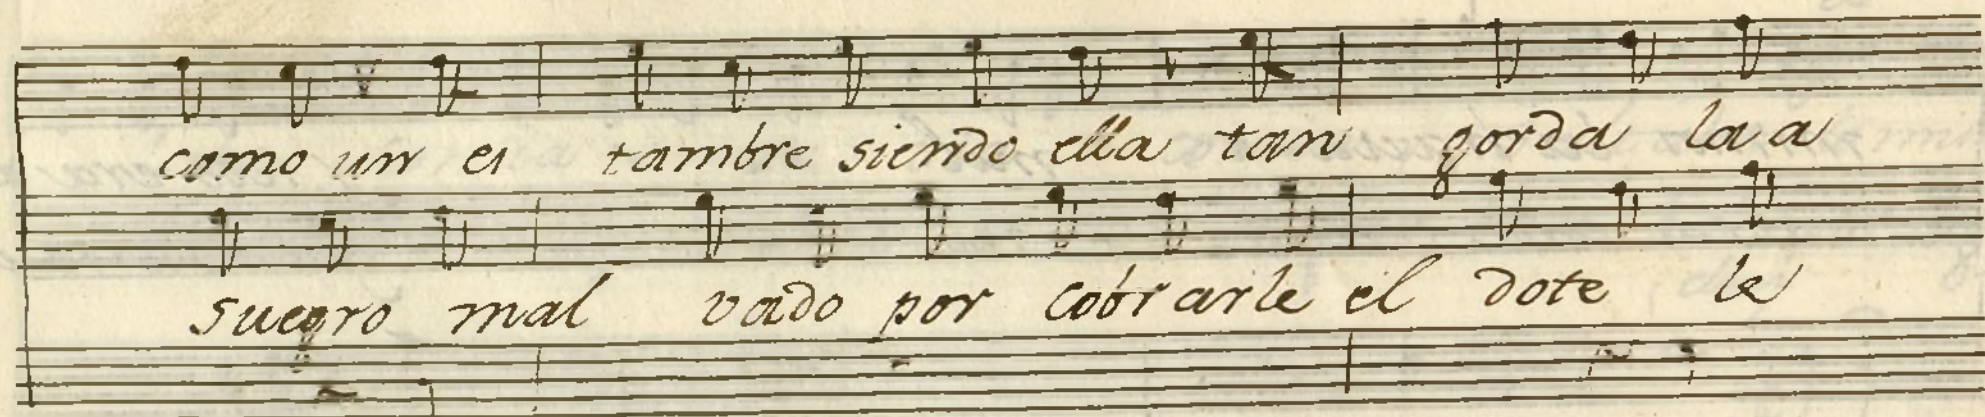 como un es tambre siendo ella tan gorda la a
suegro mal vado por cobrarle el dote le